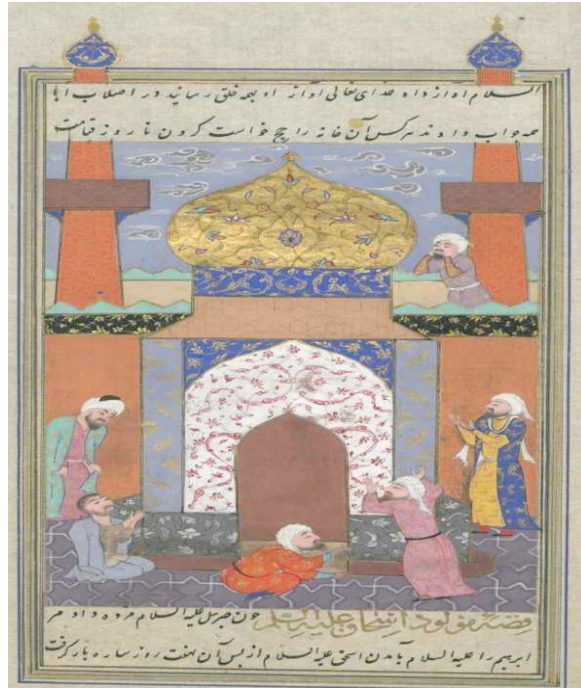 السلام آواز داد خدای تعالی آواز او بهمه خلق رسانید در اصلاب ابا
همه جواب دادند هر کس آن خانه را حج خواست کردن تا روز قیامت
قصه مولود اسحاق علیه السلم چون جبرئیل علیه السلام مژده داد مر
ابرهیم را علیه السلام بآمدن اسحق علیه السلام از پس آن بهفت روز ساره بار گرفت